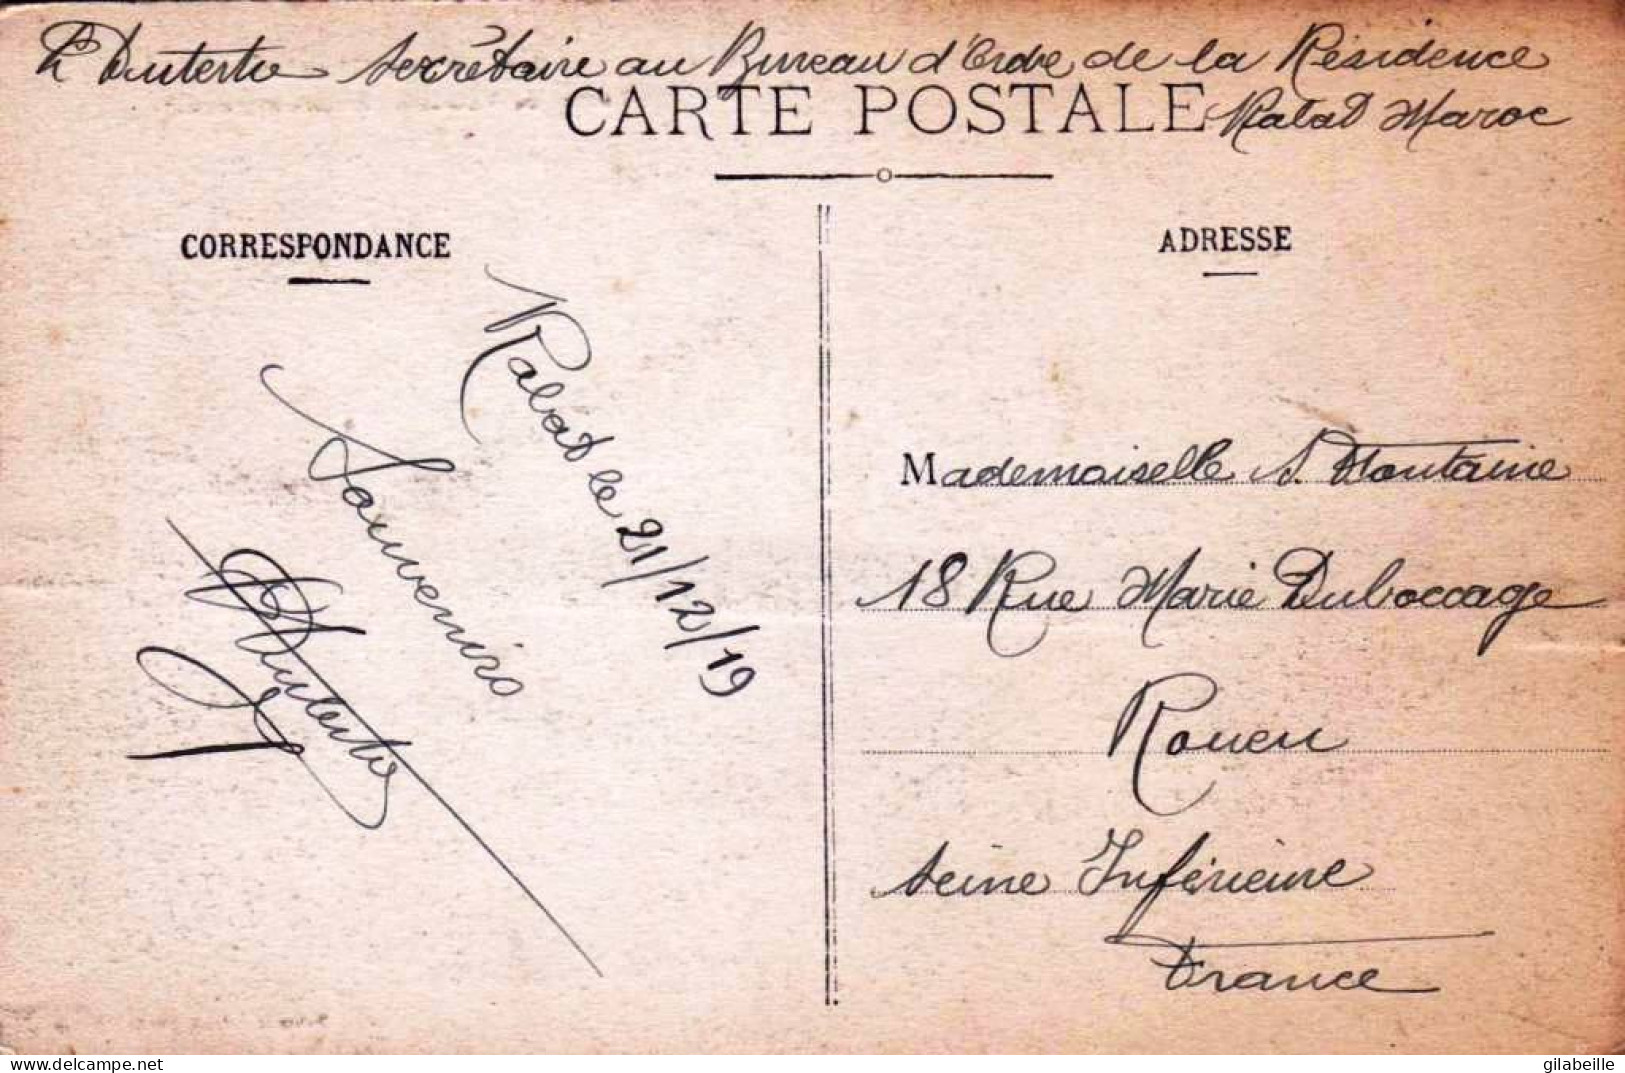 Dutertre Secrétaire au Bureau d'Ordre de la Résidence
CARTE POSTALE Rabat Maroc
CORRESPONDANCE
Rabat le 21/12/19
Souvenirs
Dutertre
ADRESSE
Mademoiselle S. Fontaine
18 Rue Marie Duboccage
Rouen
Seine Inférieure
France
Delcampe.net
gilabeille